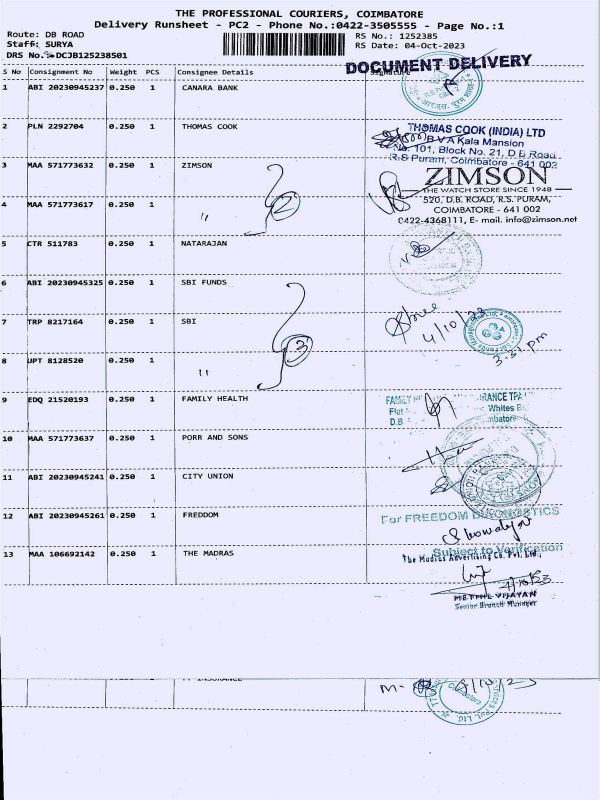 THE PROFESSIONAL COURIERS, COIMBATORE
Delivery Runsheet - PC2 - Phone No.:0422-3505555 - Page No.:1
Route: DB ROAD
RS No.: 1252385
Staff: SURYA
RS Date: 04-Oct-2023
DRS No.: DCJB125238501
DOCUMENT DELIVERY
S No Consignment No Weight PCS Consignee Details Signature
1 ABI 20230945237 0.250 1 CANARA BANK
2 PLN 2292704 0.250 1 THOMAS COOK
THOMAS COOK (INDIA) LTD
B V A Kala Mansion
No. 101, Block No. 21, D B Road
R.S Puram, Coimbatore - 641 002
3 MAA 571773632 0.250 1 ZIMSON
ZIMSON
THE WATCH STORE SINCE 1948
4 MAA 571773617 0.250 1 〃 2
520, D.B. ROAD, R.S. PURAM,
COIMBATORE - 641 002
0422-4368111, E- mail. info@zimson.net
5 CTR 511783 0.250 1 NATARAJAN
6 ABI 20230945325 0.250 1 SBI FUNDS
7 TRP 8217164 0.250 1 SBI
4/10/23
3.31 pm
8 UPT 8128520 0.250 1 〃 3
9 EDQ 21520193 0.250 1 FAMILY HEALTH
FAMILY RANCE TPA
Flat Whites
D.B
10 MAA 571773637 0.250 1 PORR AND SONS
11 ABI 20230945241 0.250 1 CITY UNION
12 ABI 20230945261 0.250 1 FREDDOM
For FREEDOM DIAGNOSTICS
Subject to Verification
13 MAA 106692142 0.250 1 THE MADRAS
The Madras Advertising Co. Pvt. Ltd.,
4/10/23
METHIL VIJAYAN
Senior Branch Manager